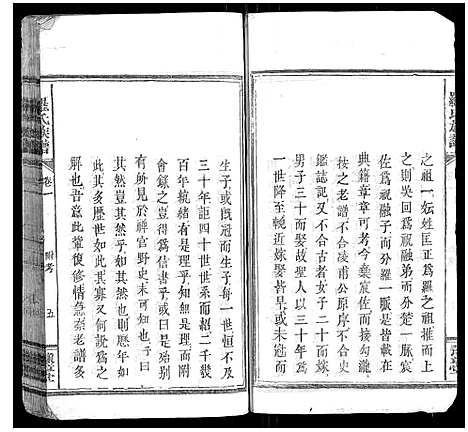 之祖一妘姓匡正爲羅之祖推而上
之則吳回爲祝融弟而分楚一脈宸
佐爲祝融子而分羅一脈是皆載在
典籍章章可考今彙宸佐而接勾龍
按之老譜不合凌甫公原序不合史
鑑誌記又不合古者女子二十而嫁
男子三十而娶故聖人以三十年爲
一世降至晚近嫁娶皆早有未冠而
生子或旣冠而生子每一世恒不及
三十年距四十世世系而紹二千幾
百年統緒有是理乎知無是理而附
會錄之豈得爲信書乎或曰是殆別
有所見於稗官野史未可知也予曰
其然豈其然乎如其然也則歷年如
此其多歷世如此其寡又何說爲之
解也吾意此輩復修情急奈老譜多
羅氏族譜
卷一
附考
五